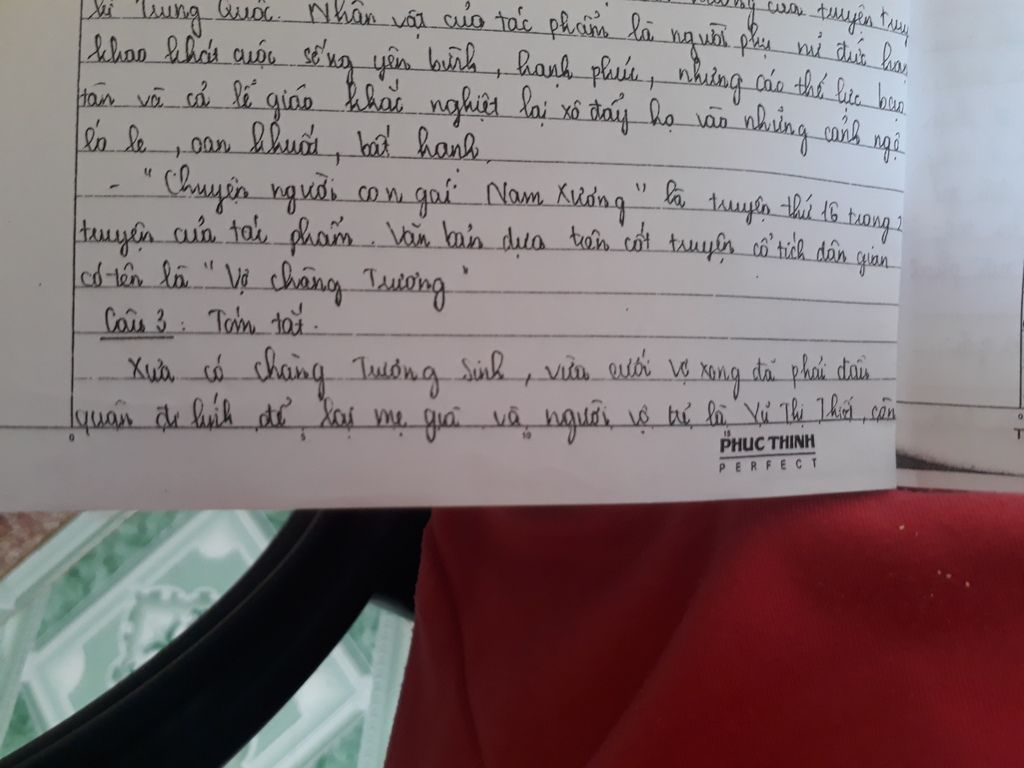 Trung Quốc. Nhân vật của tác phẩm là người phụ nữ đức hạn
khao khát cuộc sống yên bình, hạnh phúc, nhưng các thế lực bạo
tàn và cả lễ giáo khắc nghiệt lại xô đẩy họ vào những cảnh ngộ
éo le, oan khuất, bất hạnh
- "Chuyện người con gái Nam Xương" là truyện thứ 16 trong 2
truyện của tác phẩm. Văn bản dựa trên cốt truyện cổ tích dân gian
có tên là "Vợ chàng Trương"
Câu 3: Tóm tắt.
Xưa có chàng Trương Sinh, vừa cưới vợ xong đã phải đầu
quân đi lính để lại mẹ già và người vợ trẻ là Vũ Thị Thiết, còn
0 5 10 15
PHUC THINH
PERFECT